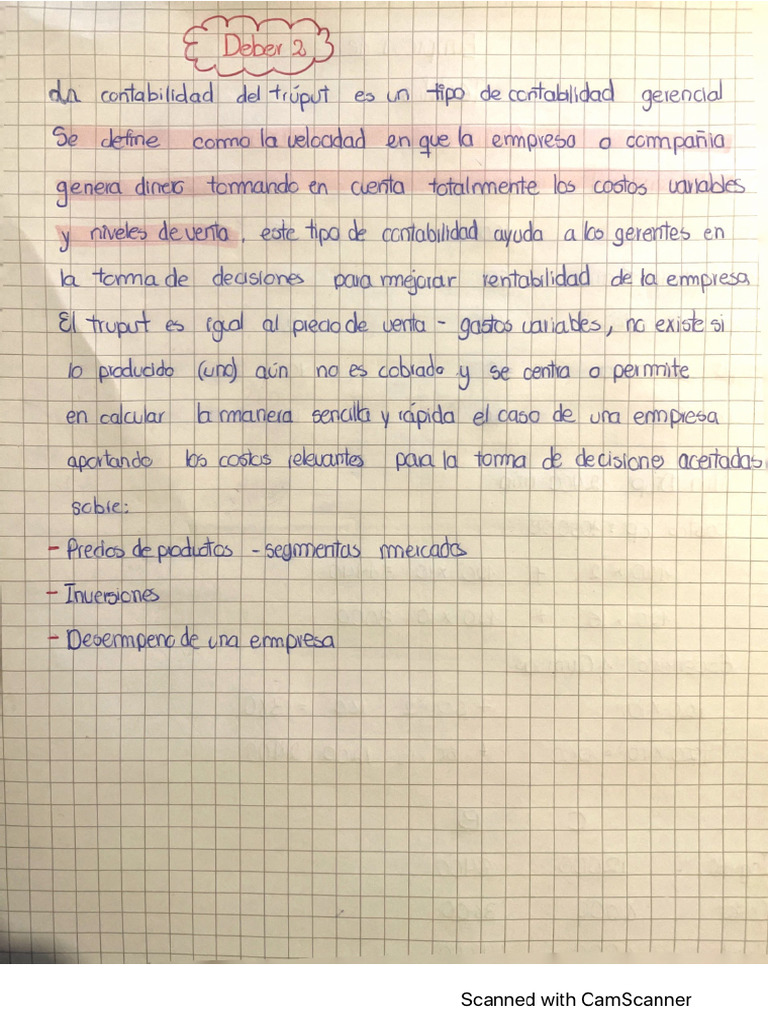 Deber 2
La contabilidad del trúput es un tipo de contabilidad gerencial
Se define como la velocidad en que la empresa o compañia
genera dinero tomando en cuenta totalmente los costos variables
y niveles de venta, este tipo de contabilidad ayuda a los gerentes en
la toma de decisiones para mejorar rentabilidad de la empresa
El truput es igual al precio de venta - gastos variables, no existe si
lo producido (uno) aún no es cobrado y se centra o permite
en calcular la manera sencilla y rápida el caso de una empresa
aportando los costos relevantes para la toma de decisiones acertadas
sobre:
- Precios de productos - segmentos mercados
- Inversiones
- Desempeno de una empresa
Scanned with CamScanner